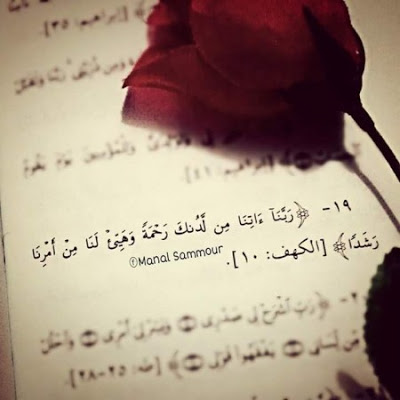 [إبراهيم: ٣٥].
[إبراهيم: ٤١].
١٩- ﴿رَبَّنَآ ءَاتِنَا مِن لَّدُنكَ رَحْمَةً وَهَيِّئْ لَنَا مِنْ أَمْرِنَا
رَشَدًا﴾ [الكهف: ١٠].
Manal Sammour
﴿رَبِّ ٱشْرَحْ لِى صَدْرِى وَيَسِّرْ لِىٓ أَمْرِى وَٱحْلُلْ
مِّن لِّسَانِى يَفْقَهُوا۟ قَوْلِى﴾ [طه: ٢٥-٢٨].